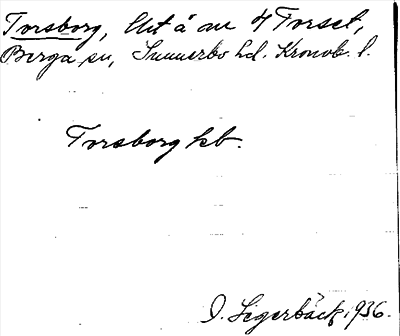 Torsborg, lht å au 4 Torset,
Berga sn, Sunnerbo hd. Kronob. l.
Torsborg kb.
I. Segerbäck, 1936.